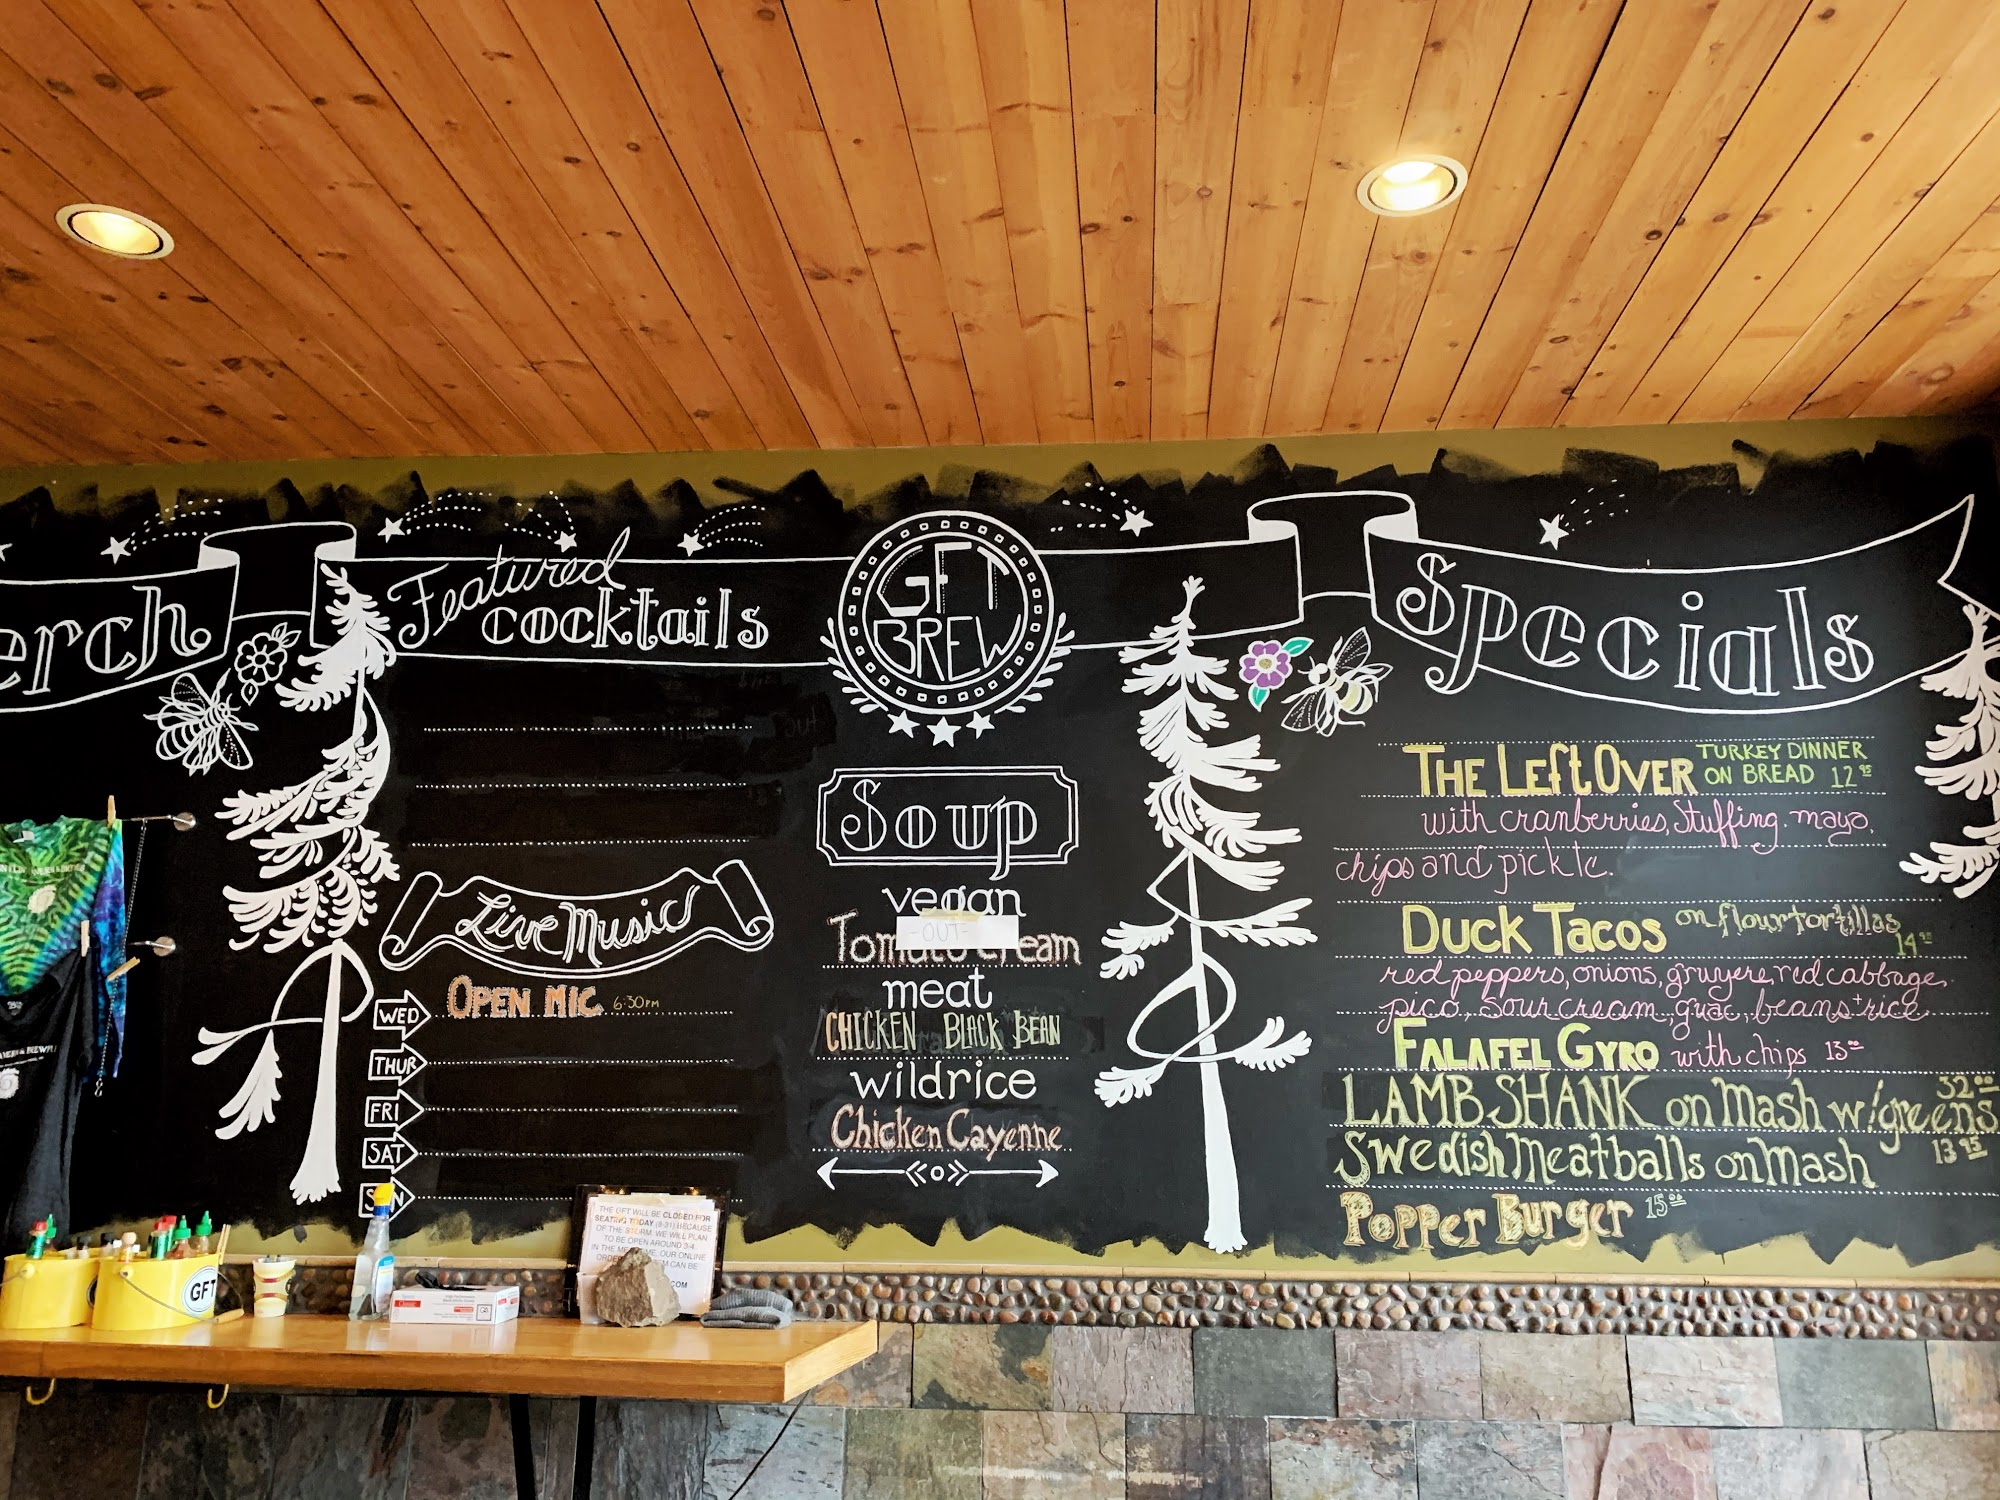 erch
Featured
cocktails
GFT
BREW
Specials
Soup
vegan
-OUT-
Tomato Cream
meat
CHICKEN BLACK BEAN
wildrice
Chicken Cayenne
Live Music
WED OPEN MIC 6:30PM
THUR
FRI
SAT
SUN
THE LEFTOVER TURKEY DINNER
ON BREAD 12 95
with cranberries, stuffing, mayo,
chips and pickle.
DUCK TACOS on flour tortillas
14 95
red peppers, onions, gruyere, red cabbage,
pico, sour cream, guac, beans + rice
FALAFEL GYRO with chips 13 00
LAMB SHANK on mash w/greens 32 00
Swedish Meatballs on mash 13 95
Popper Burger 15 00
THE GFT WILL BE CLOSED FOR
SEATING TODAY (8-31) BECAUSE
OF THE STORM. WE WILL PLAN
TO BE OPEN AROUND 3-4.
IN THE MEANTIME, OUR ONLINE
CAN BE
.COM
GFT